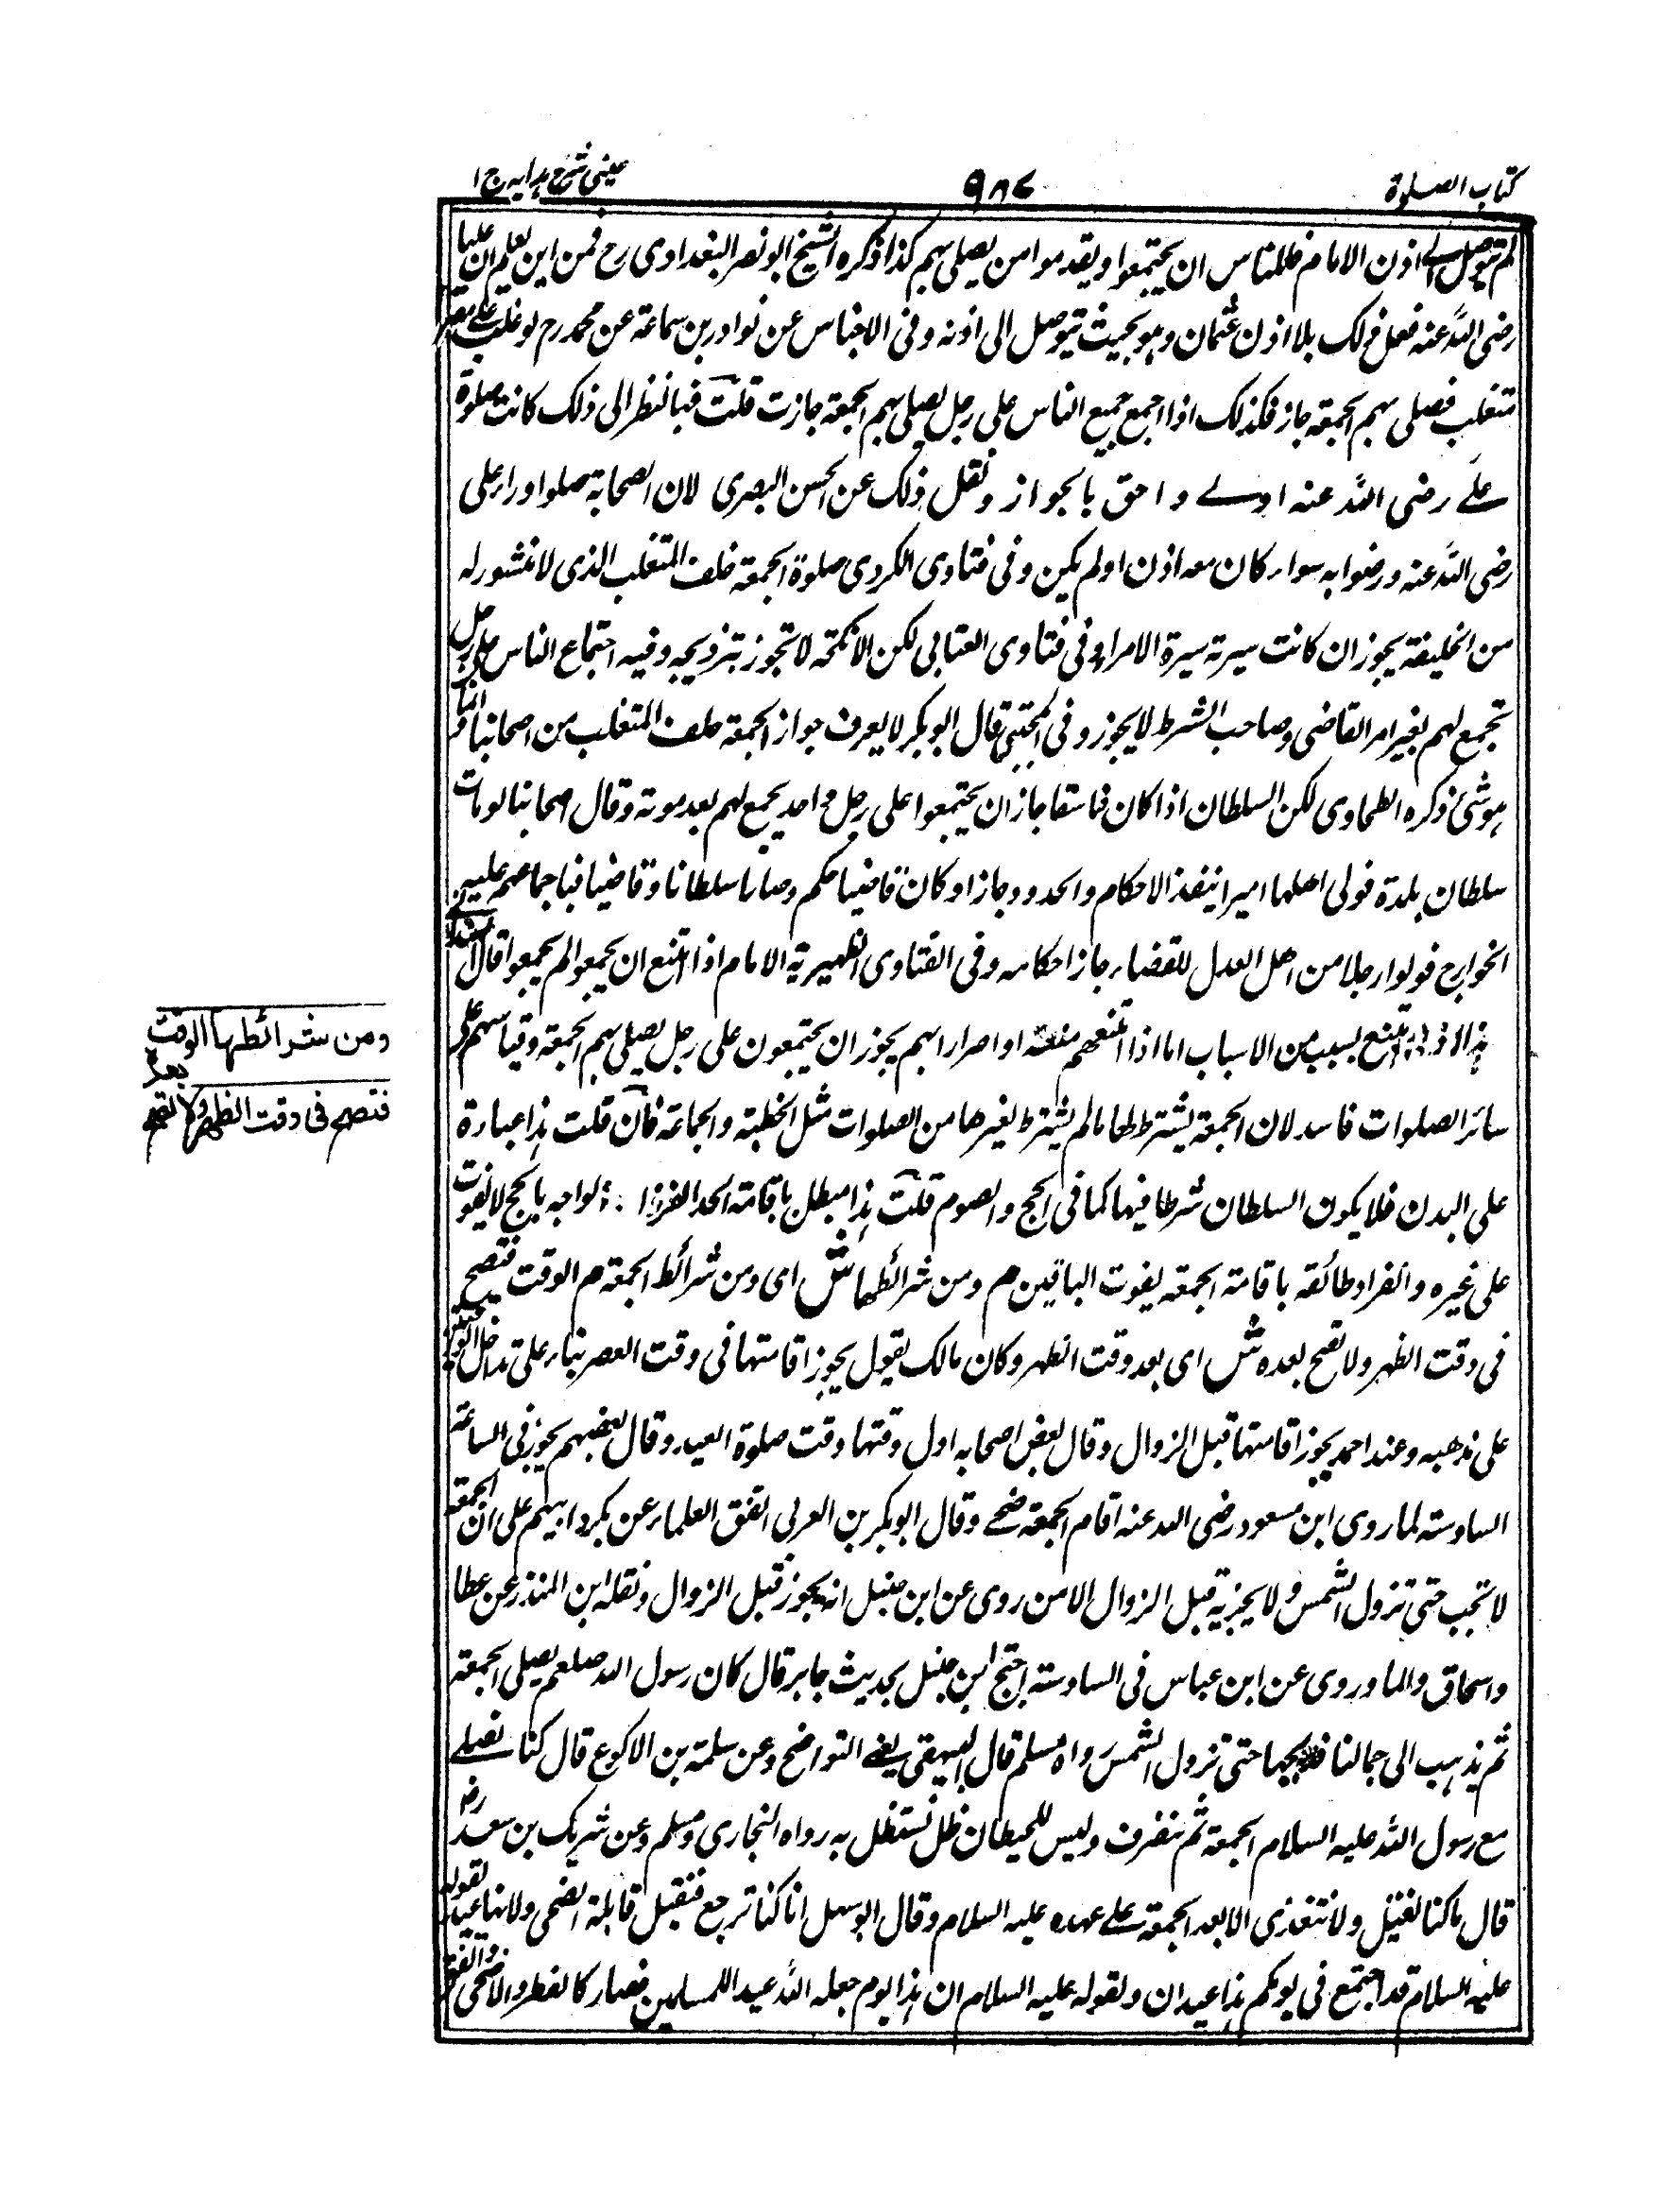 كتاب الصلوة
٩٨٤
عينى شرح هدايه ج ١
لم يتوصل الى اذن الامام فللناس ان يجتمعوا ويقدموا من يصلى بهم كذا ذكره الشيخ ابو نصر البغدادى رح فمن اين يعلم ان عليا
رضى الله عنه فعل ذلك بلا اذن عثمان وهو بحيث يتوصل الى اذنه وفى الاجناس عن نوادر بن سماعة عن محمد رح لو غلب على مصر
متغلب فصلى بهم الجمعة جاز فكذلك اذا اجمع جميع الناس على رجل يصلى بهم الجمعة جازت قلت فبالنظر الى ذلك كانت صلوة
على رضى الله عنه اولى واحق بالجواز ونقل ذلك عن الحسن البصرى لان الصحابة صلوا وراء على
رضى الله عنه ورضوا به سواء كان معه اذن او لم يكن وفى فتاوى الكردى صلوة الجمعة خلف المتغلب الذى لا منشور له
من الخليفة يجوز ان كانت سيرته سيرة الامراء وفى فتاوى العتابى لكن الانكحة لا تجوز بتزويجه وفيه اجتماع الناس على رجل
تجمع لهم بغير امر القاضى وصاحب الشرط لا يجوز وفى المجتبى قال ابو بكر لا يعرف جواز الجمعة خلف المتغلب من اصحابنا وانما
هو شئ ذكره الطحاوى لكن السلطان اذا كان فاسقا جاز ان يجتمعوا على رجل واحد يجمع لهم بعد موته وقال اصحابنا لو مات
سلطان بلدة فولى اهلها اميرا ينفذ الاحكام والحدود جاز او كان قاضيا حكم وصارا سلطانا وقاضيا فباجماعهم عليه
الخوارج فولوا رجلا من اهل العدل للقضاء جاز احكامه وفى الفتاوى الظهيرية الامام اذا امتنع ان يجمعوا لم يجمعوا قال
هذا اذا امتنع بسبب من الاسباب اما اذا امتنعهم منعة او اصرارا بهم يجوز ان يجتمعون على رجل يصلى بهم الجمعة وقياسهم على
سائر الصلوات فاسد لان الجمعة يشترط لها ما لم يشترط لغيرها من الصلوات مثل الخطبة والجماعة فان قلت هذا عبادة
على البدن فلا يكون السلطان شرطا فيها كما فى الحج والصوم قلت هذا مبطل باقامة الحد الواجب بالحج لا يفوت
على غيره وانفراد طائفة باقامة الجمعة يفوت الباقين م ومن شرائطها ش اى ومن شرائط الجمعة م الوقت فتصح
فى وقت الظهر ولا تصح بعده ش اى بعد وقت الظهر وكان مالك يقول يجوز اقامتها فى وقت العصر بناء على تداخل الوقتين
على مذهبه وعند احمد يجوز اقامتها قبل الزوال وقال بعض اصحابه اول وقتها وقت صلوة العيد وقال بعضهم يجوز فى الساعة
السادسة لما روى ابن مسعود رضى الله عنه اقام الجمعة ضحى وقال ابو بكر بن العربى اتفق العلماء عن بكرة ابيهم على ان الجمعة
لا تجب حتى تزول الشمس ولا يجزيه قبل الزوال الا من روى عن ابن حنبل انه يجوز قبل الزوال ونقله ابن المنذر عن عطا
واسحاق والماوردى عن ابن عباس فى السادسة احتج ابن حنبل بحديث جابر قال كان رسول الله صلعم يصلى الجمعة
ثم نذهب الى جمالنا فنريحها حتى تزول الشمس رواه مسلم قال البيهقى يعنى النواضح وعن سلمة بن الاكوع قال كنا نصلى
مع رسول الله عليه السلام الجمعة ثم ننصرف وليس للحيطان ظل نستظل به رواه البخارى ومسلم وعن شريك بن سعد رض
قال ما كنا نقيل ولا نتغذى الا بعد الجمعة على عهده عليه السلام وقال ابو سهل انا كنا نرجع فنقيل قايلة الضحى ولانها عيد لقوله
عليه السلام قد اجتمع فى يومكم هذا عيدان ولقوله عليه السلام ان هذا يوم جعله الله عيدا للمسلمين فصار كالفطر والاضحى واتفق
ومن شرائطها الوقت
فتصح فى وقت الظهر ولا تصح بعده